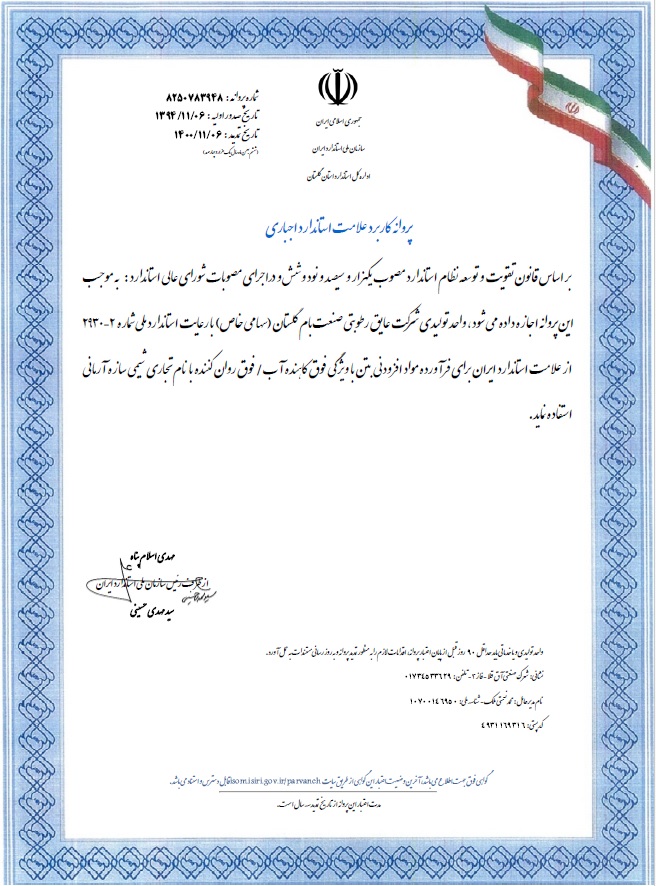 جمهوری اسلامی ایران
سازمان ملی استاندارد ایران
اداره کل استاندارد استان گلستان
شماره پروانه : ۸۲۵۰۷۸۳۹۴۸
تاریخ صدور اولیه : ۱۳۹۴/۱۱/۰۶
تاریخ تمدید : ۱۴۰۰/۱۱/۰۶
پروانه کاربرد علامت استاندارد اجباری
بر اساس قانون تقویت و توسعه نظام استاندارد مصوب یکهزار و سیصد و نود و شش و در اجرای مصوبات شورای عالی استاندارد : به موجب
این پروانه اجازه داده می شود، واحد تولیدی شرکت عایق رطوبتی صنعت بام گلستان (سهامی خاص) با رعایت استاندارد ملی شماره ۲-۲۹۳۰
از علامت استاندارد ایران برای فرآورده مواد افزودنی بتن با ویژگی فوق کاهنده آب / فوق روان کننده با نام تجاری شیمی سازه آرمانی
استفاده نماید.
مهدی اسلام پناه
از طرف رئیس سازمان ملی استاندارد ایران
سید مهدی حسینی
واحد تولیدی و یا خدماتی باید حداقل ۹۰ روز قبل از پایان اعتبار پروانه، اقدامات لازم را به منظور تمدید پروانه و به روز رسانی مستندات به عمل آورد.
نشانی: شهرک صنعتی آق قلا-فاز ۲-تلفن: ۰۱۷۳۴۵۳۳۶۲۹
نام مدیرعامل: محمد نعمتی فلک-شناسه ملی: ۱۰۷۰۰۱۴۶۹۵۰
کد پستی: ۴۹۳۱۱۶۹۳۱۶
گواهی فوق جهت اطلاع می باشد، آخرین وضعیت اعتبار این گواهی از طریق سایت isom.isiri.gov.ir/parvaneh قابل دسترس و استناد می باشد.
مدت اعتبار این پروانه از تاریخ تمدید سه سال است.